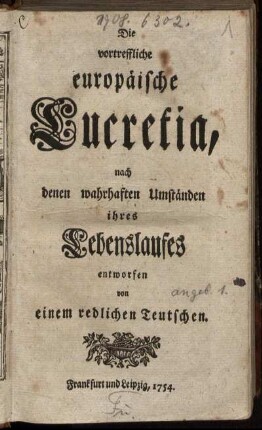 1908. 6302.
Die
vortreffliche
europäische
Lucretia,
nach
denen wahrhaften Umständen
ihres
Lebenslaufes
entworfen
von
angeb. 1.
einem redlichen Teutschen.
Frankfurt und Leipzig, 1754.